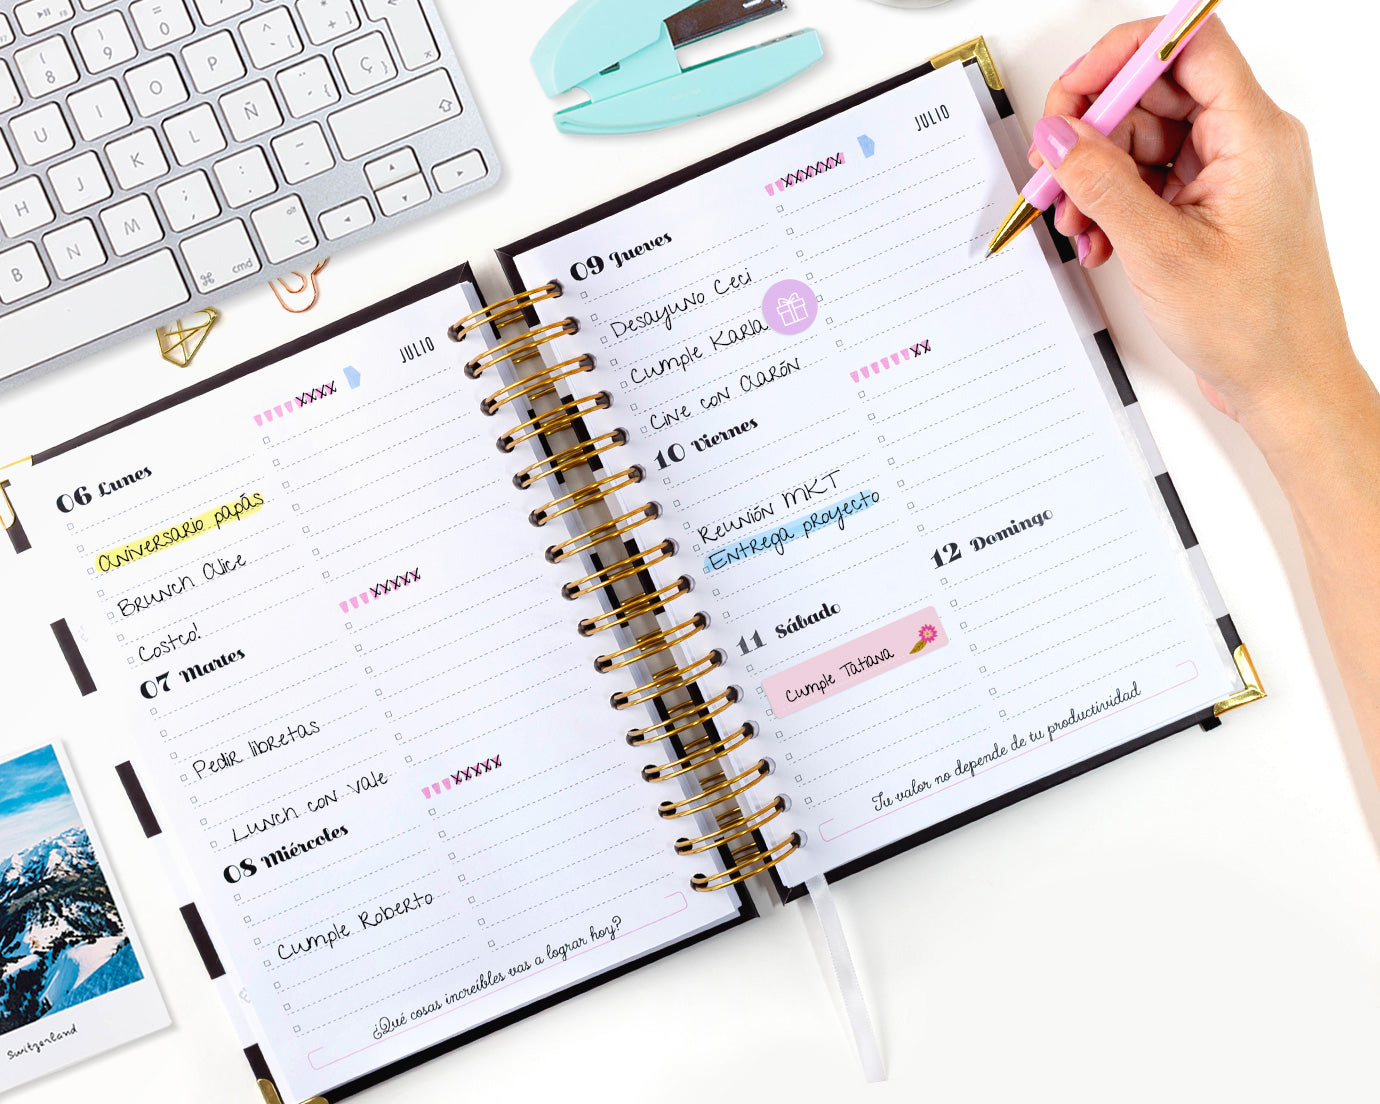 JULIO
06 Lunes
Aniversario papás
Brunch Alice
Costco!
07 Martes
Pedir libretas
Lunch con Vale
08 Miércoles
Cumple Roberto
¿Qué cosas increíbles vas a lograr hoy?
JULIO
09 Jueves
Desayuno Ceci
Cumple Karla
Cine con Aarón
10 Viernes
Reunión MKT
Entrega proyecto
11 Sábado
Cumple Tatiana
12 Domingo
Tu valor no depende de tu productividad
Switzerland
8 9 0
U I O P
H J K L Ñ Ç
B N M
cmd